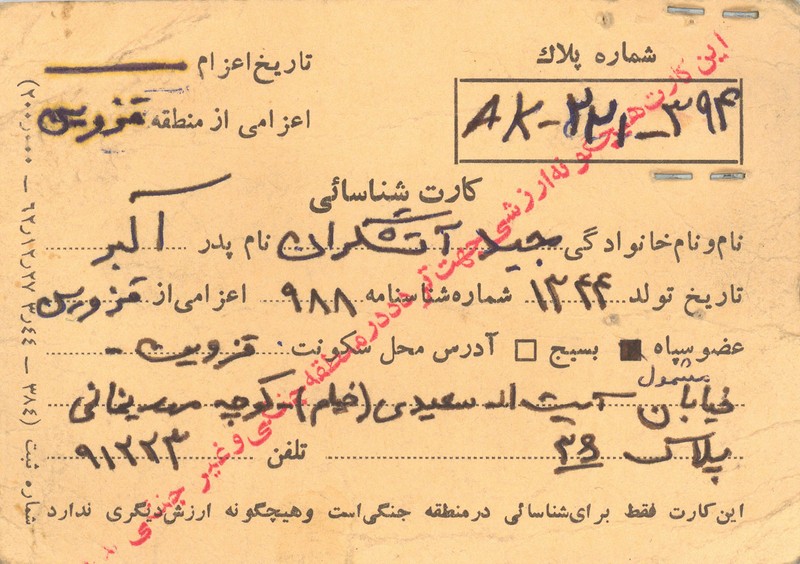 شماره پلاك
AK-۳۳۱-۳۹۴
تاریخ اعزام
اعزامی از منطقه قزوین
کارت شناسائی
نام و نام خانوادگی مجید آتشگران نام پدر اکبر
تاریخ تولد ۱۳۴۴ شماره شناسنامه ۹۸۸ اعزامی از قزوین
عضو سپاه ■ بسیج □ آدرس محل سکونت: قزوین -
مشمول
خیابان آیت اله سعیدی (خیام) - کوچه
پلاک ۳۶ تلفن ۹۱۲۲۳
این کارت فقط برای شناسائی در منطقه جنگی است وهیچگونه ارزش دیگری ندارد
این کارت هیچگونه ارزشی جهت تردد در منطقه جنگی و غیر جنگی
شماره ثبت (۳۸٤ — ۳ر٤٤ ۲۷ر۱۲ر٦۲ — ۲۰۰ر۰۰۰)